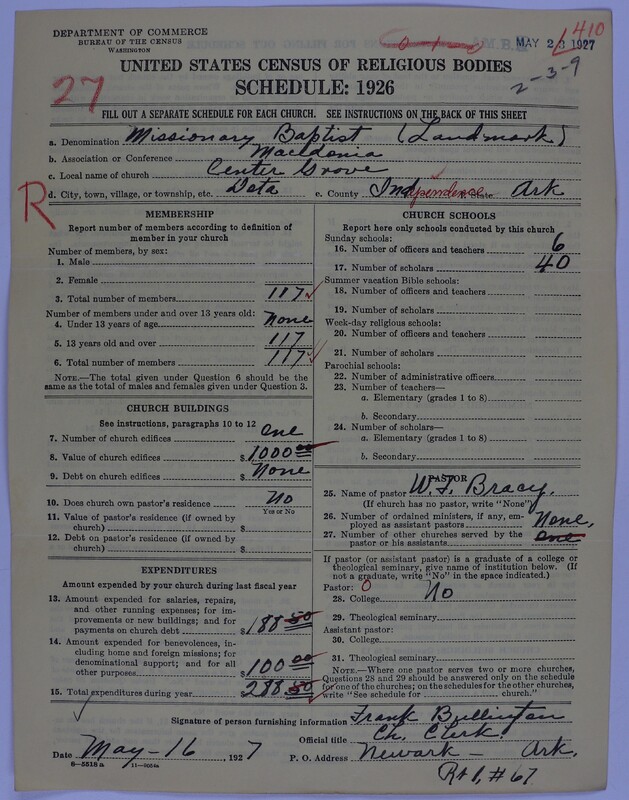 DEPARTMENT OF COMMERCE
BUREAU OF THE CENSUS
WASHINGTON
MAY 23 1927
410
27
2-3-9
UNITED STATES CENSUS OF RELIGIOUS BODIES
SCHEDULE: 1926
FILL OUT A SEPARATE SCHEDULE FOR EACH CHURCH. SEE INSTRUCTIONS ON THE BACK OF THIS SHEET
a. Denomination Missionary Baptist (Landmark)
b. Association or Conference Macedonia
c. Local name of church Center Grove
R
d. City, town, village, or township, etc. Dota e. County Independence State Ark
MEMBERSHIP
Report number of members according to definition of
member in your church
Number of members, by sex:
1. Male
2. Female
3. Total number of members 117
Number of members under and over 13 years old:
4. Under 13 years of age None
5. 13 years old and over 117
6. Total number of members 117
NOTE.—The total given under Question 6 should be the
same as the total of males and females given under Question 3.
CHURCH BUILDINGS
See instructions, paragraphs 10 to 12
7. Number of church edifices one
8. Value of church edifices $ 1000 00
9. Debt on church edifices $ None
10. Does church own pastor's residence No
Yes or No
11. Value of pastor's residence (if owned by
church) $
12. Debt on pastor's residence (if owned by
church) $
EXPENDITURES
Amount expended by your church during last fiscal year
13. Amount expended for salaries, repairs,
and other running expenses; for im-
provements or new buildings; and for
payments on church debt $ 188 50
14. Amount expended for benevolences, in-
cluding home and foreign missions; for
denominational support; and for all
other purposes $ 100 00
15. Total expenditures during year 288 50
CHURCH SCHOOLS
Report here only schools conducted by this church
Sunday schools:
16. Number of officers and teachers 6
17. Number of scholars 40
Summer vacation Bible schools:
18. Number of officers and teachers
19. Number of scholars
Week-day religious schools:
20. Number of officers and teachers
21. Number of scholars
Parochial schools:
22. Number of administrative officers
23. Number of teachers—
a. Elementary (grades 1 to 8)
b. Secondary
24. Number of scholars—
a. Elementary (grades 1 to 8)
b. Secondary
PASTOR
25. Name of pastor W. F. Bracy.
(If church has no pastor, write "None")
26. Number of ordained ministers, if any, em-
ployed as assistant pastors None,
27. Number of other churches served by the
pastor or his assistants one
If pastor (or assistant pastor) is a graduate of a college or
theological seminary, give name of institution below. (If
not a graduate, write "No" in the space indicated.)
Pastor: 0
28. College No
29. Theological seminary
Assistant pastor:
30. College
31. Theological seminary
NOTE.—Where one pastor serves two or more churches,
Questions 28 and 29 should be answered only on the schedule
for one of the churches; on the schedules for the other churches,
write "See schedule for church."
Signature of person furnishing information Frank Bullington
Official title Ch. Clerk.
Date May-16 1927 P. O. Address Newark - Ark.
8-5518 a 11-9054a
Rt 1, #67